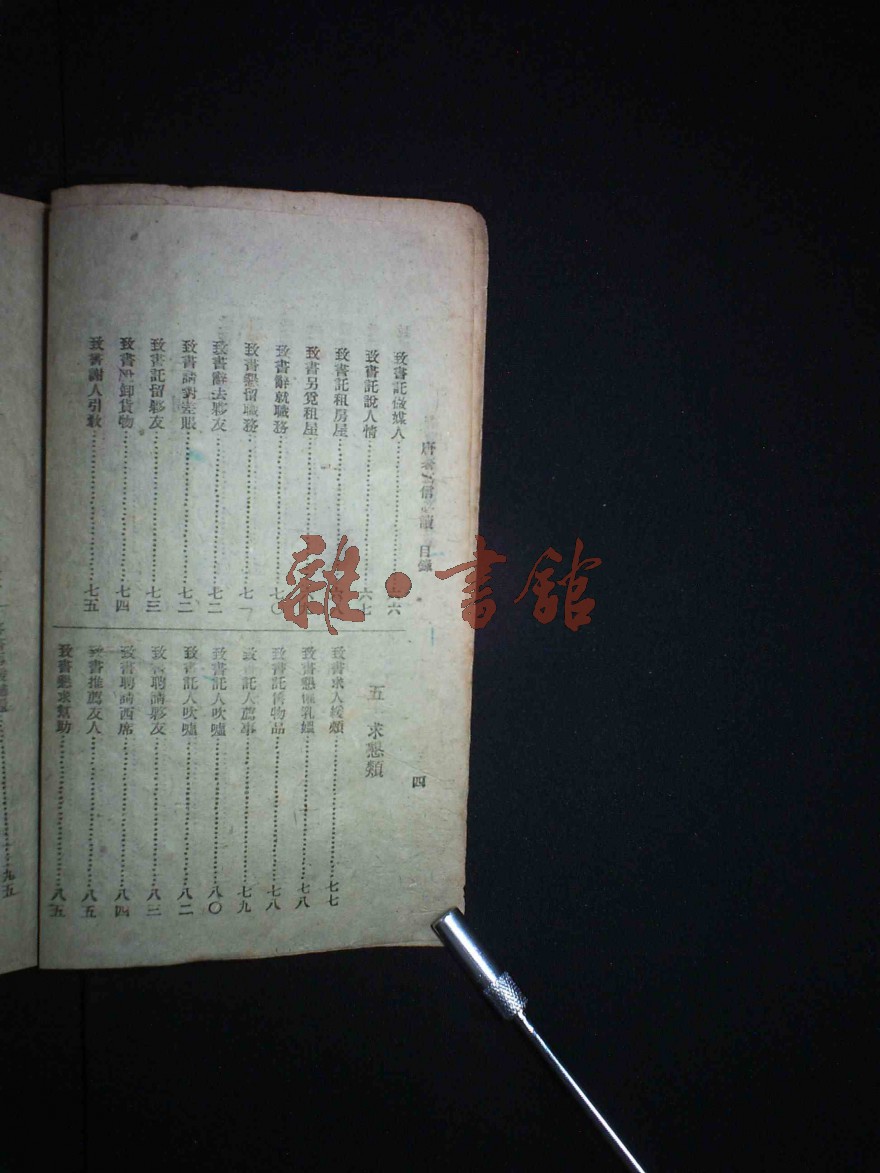 信 讀 目錄
四
致書託做媒人 六六
致書託說人情 六七
致書託租房屋
致書另覓租屋
致書辭就職務 七〇
致書懇留職務 七一
致書辭去夥友 七二
致書請對差賬 七二
致書託留夥友 七三
致書 卸貨物 七四
致書謝人引救 七五
五 求懇類
致書求人援類 七七
致書懇 乳媼 七八
致書託售物品 七八
致書託人薦事 七九
致書託人吹噓 八〇
致書託人吹噓 八二
致書聘請夥友 八三
致書聘請西席 八四
致書推薦友人 八五
致書懇求幫助 八五
九五
雜·書館